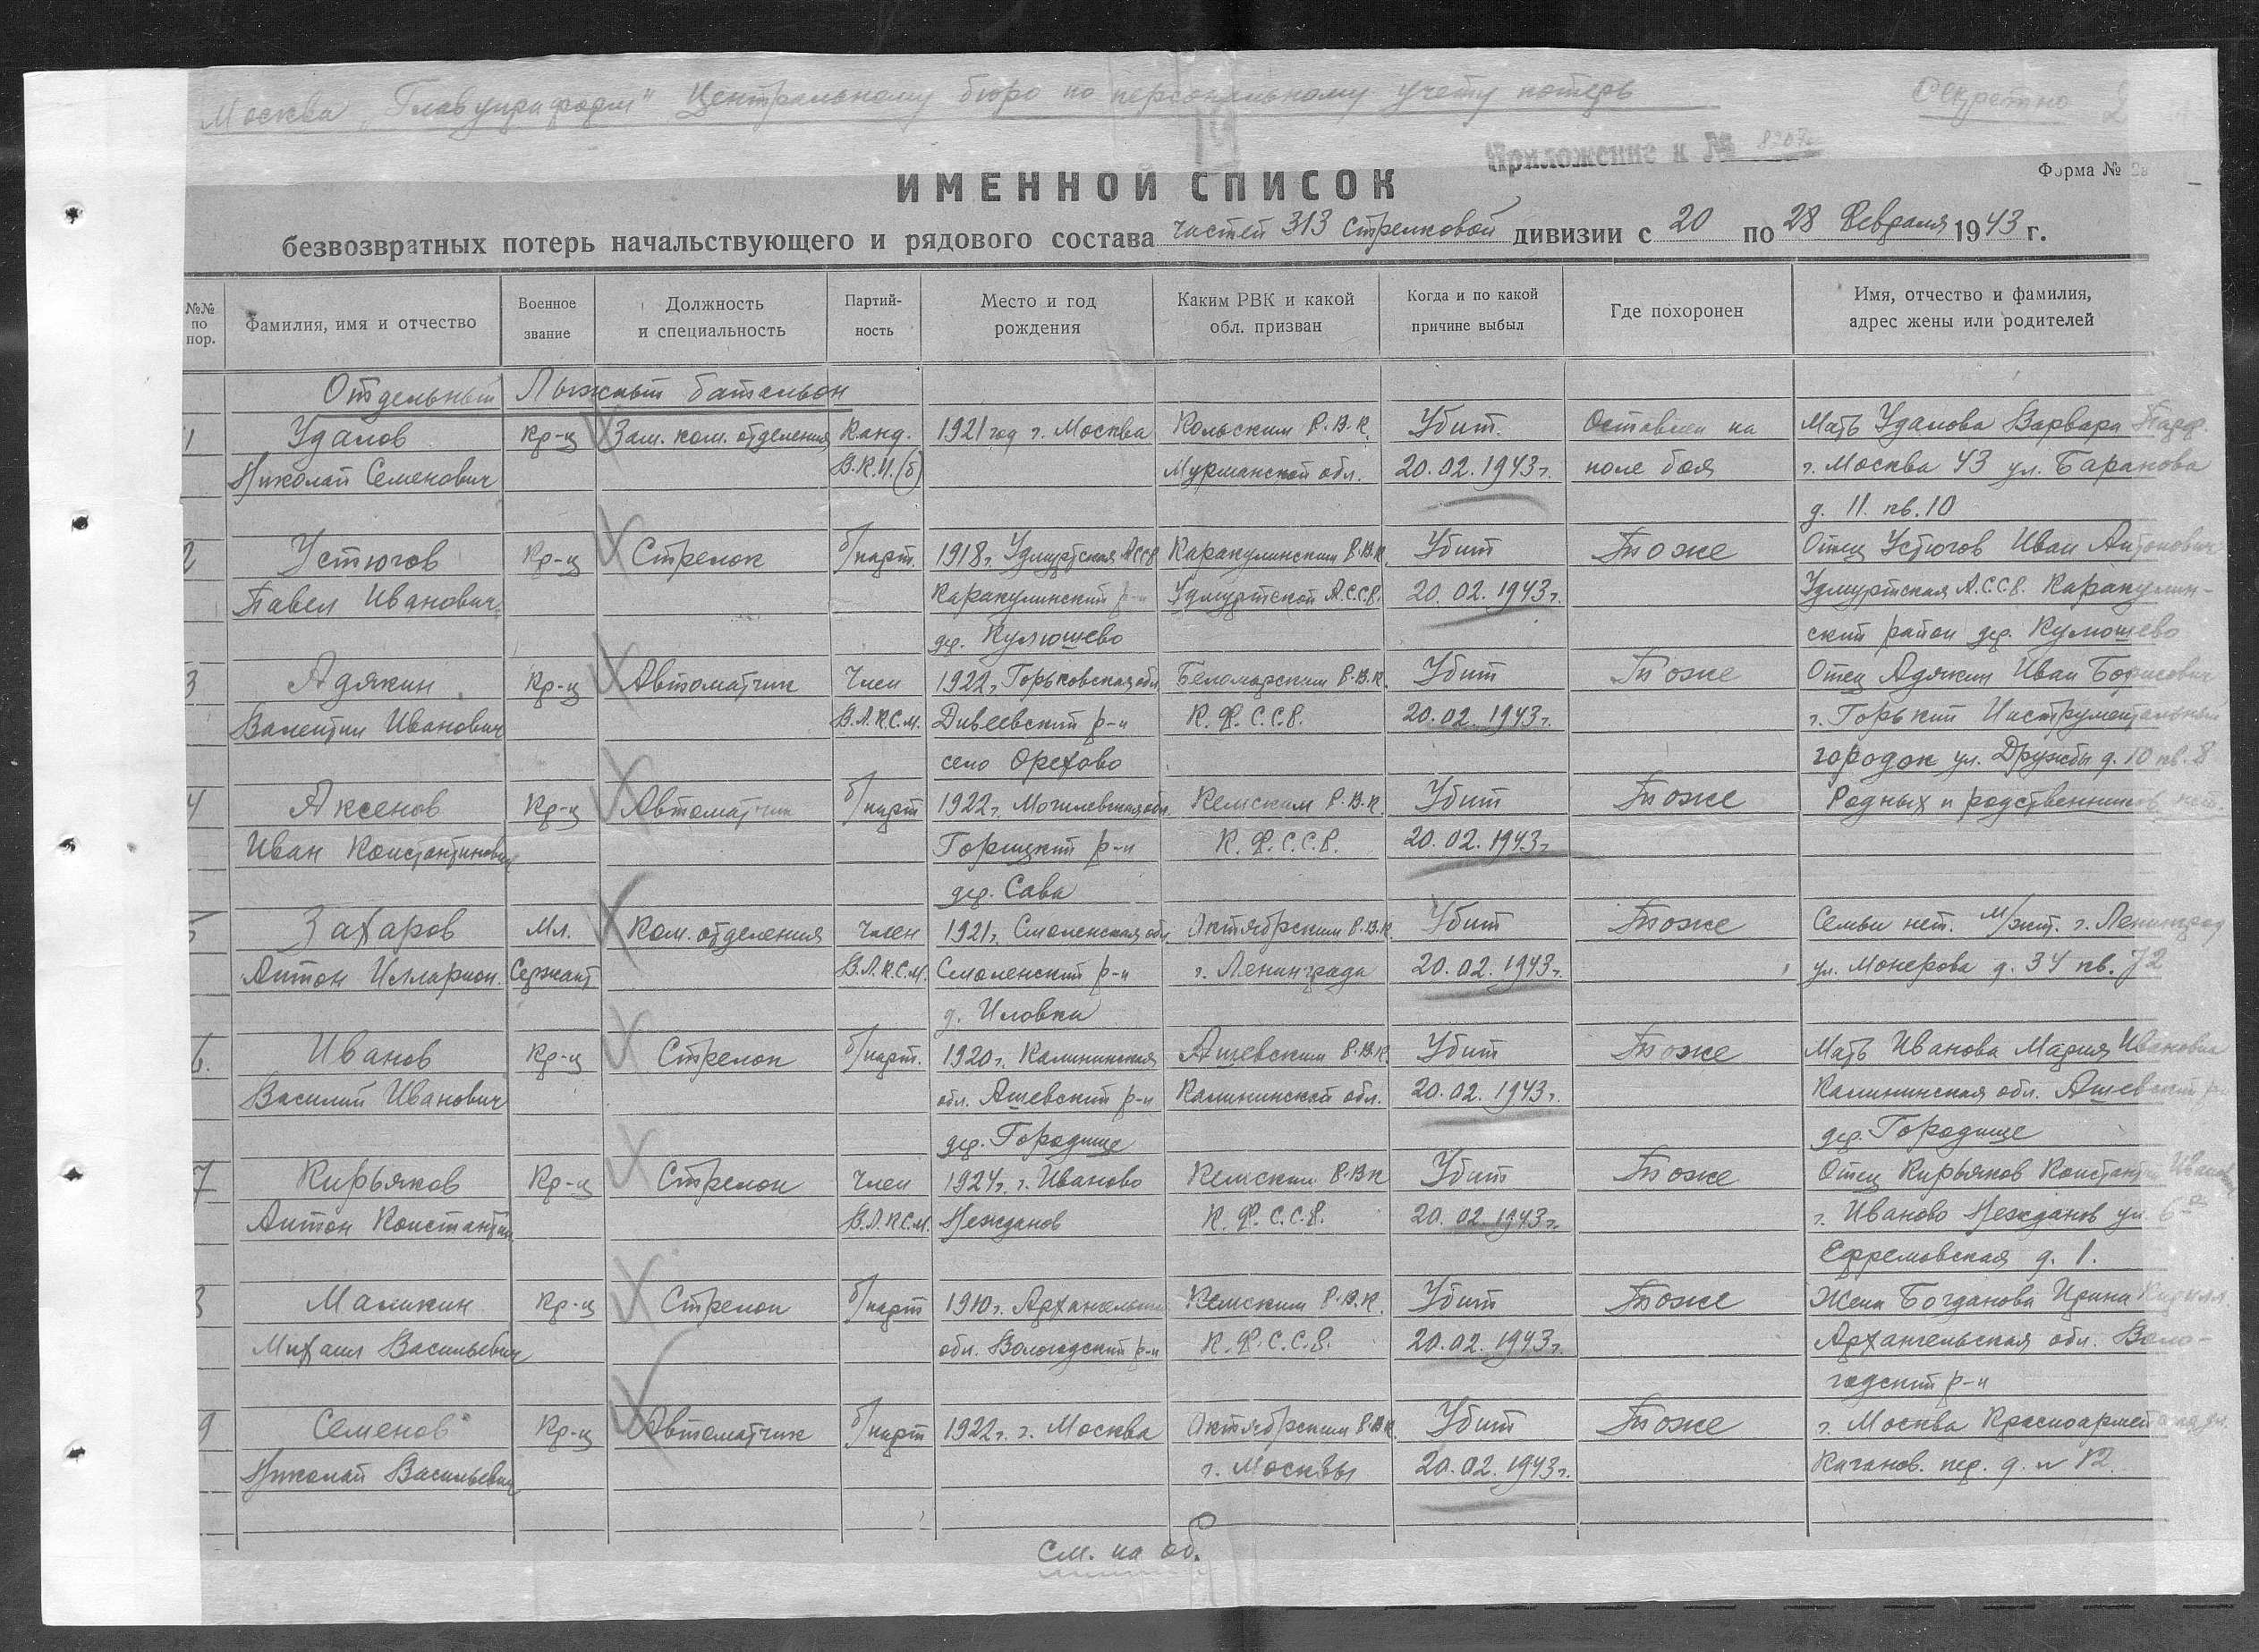 Москва „Главупраформ" Центральному бюро по персональному учету потерь
Секретно 2
Приложение к №
Форма № 2в
ИМЕННОЙ СПИСОК
безвозвратных потерь начальствующего и рядового состава частей 313 стрелковой дивизии с 20 по 28 февраля 1943 г.
№№ по пор.
Фамилия, имя и отчество
Военное звание
Должность и специальность
Партий- ность
Место и год рождения
Каким РВК и какой обл. призван
Когда и по какой причине выбыл
Где похоронен
Имя, отчество и фамилия, адрес жены или родителей
Отдельный Лыжный батальон
1 Удалов Кр-ц Зам. ком. отделения Канд. 1921 год г. Москва Кольским Р.В.К. Убит. Оставлен на Мать Удалова Варвара Парф.
Николай Семенович В.К.П.(б) Мурманской обл. 20.02.1943г. поле боя г. Москва 43 ул. Баранова
д. 11. кв. 10
2 Устюгов Кр-ц Стрелок б/парт. 1918г. Удмуртская АССР Каракулинским Р.В.К. Убит Тоже Отец Устюгов Иван Антонович
Павел Иванович Каракулинский р-н Удмуртской А.С.С.Р. 20.02.1943г. Удмуртская А.С.С.Р. Каракулин-
дер. Кулюшево ский район дер. Кулюшево
3 Адякин Кр-ц Автоматчик Член 1922г. Горьковская обл. Беломорским Р.В.К. Убит Тоже Отец Адякин Иван Борисович
Валентин Иванович В.Л.К.С.М. Дивеевский р-н К.Ф.С.С.Р. 20.02.1943г. г. Горький Инструментальный
село Орехово городок ул. Дружбы д. 10 кв. 8
4 Аксенов Кр-ц Автоматчик б/парт 1922г. Могилевская обл. Кемским Р.В.К. Убит Тоже Родных и родственников нет.
Иван Константинович Горицкий р-н К.Ф.С.С.Р. 20.02.1943г
дер. Сава
5 Захаров Мл. Ком. отделения Член 1921г. Смоленская обл. Октябрьским Р.В.К. Убит Тоже Семьи нет. М/жит. г. Ленинград
Антон Илларион. Сержант В.Л.К.С.М. Смоленский р-н г. Ленинграда 20.02.1943г. ул. Монерова д. 34 кв. 72
д. Иловка
6. Иванов Кр-ц Стрелок б/парт. 1920г. Калининская Ашевским Р.В.К. Убит Тоже Мать Иванова Мария Ивановна
Василий Иванович обл. Ашевский р-н Калининской обл. 20.02.1943г. Калининская обл. Ашевский р-н
дер. Городище дер. Городище
7 Кирьяков Кр-ц Стрелок Член 1924г. г. Иваново Кемским Р.В.К Убит Тоже Отец Кирьяков Констант. Иванов.
Антон Константин В.Л.К.С.М. Нежданов К.Ф.С.С.Р. 20.02.1943г. г. Иваново Нежданов ул. 6ая
Ефремовская д. 1.
8 Маликин Кр-ц Стрелок б/парт 1910г. Архангельск Кемским Р.В.К. Убит Тоже Жена Богданова Ирина Кирилл.
Михаил Васильевич обл. Вологодский р-н К.Ф.С.С.Р. 20.02.1943г. Архангельская обл. Воло-
годский р-н
9 Семенов Кр-ц Автоматчик б/парт 1922г. г. Москва Октябрьским Р.В.К Убит Тоже г. Москва Красноармейская ул.
Николай Васильевич г. Москвы 20.02.1943г. Качанов. пер. д. № 12.
См. на об.